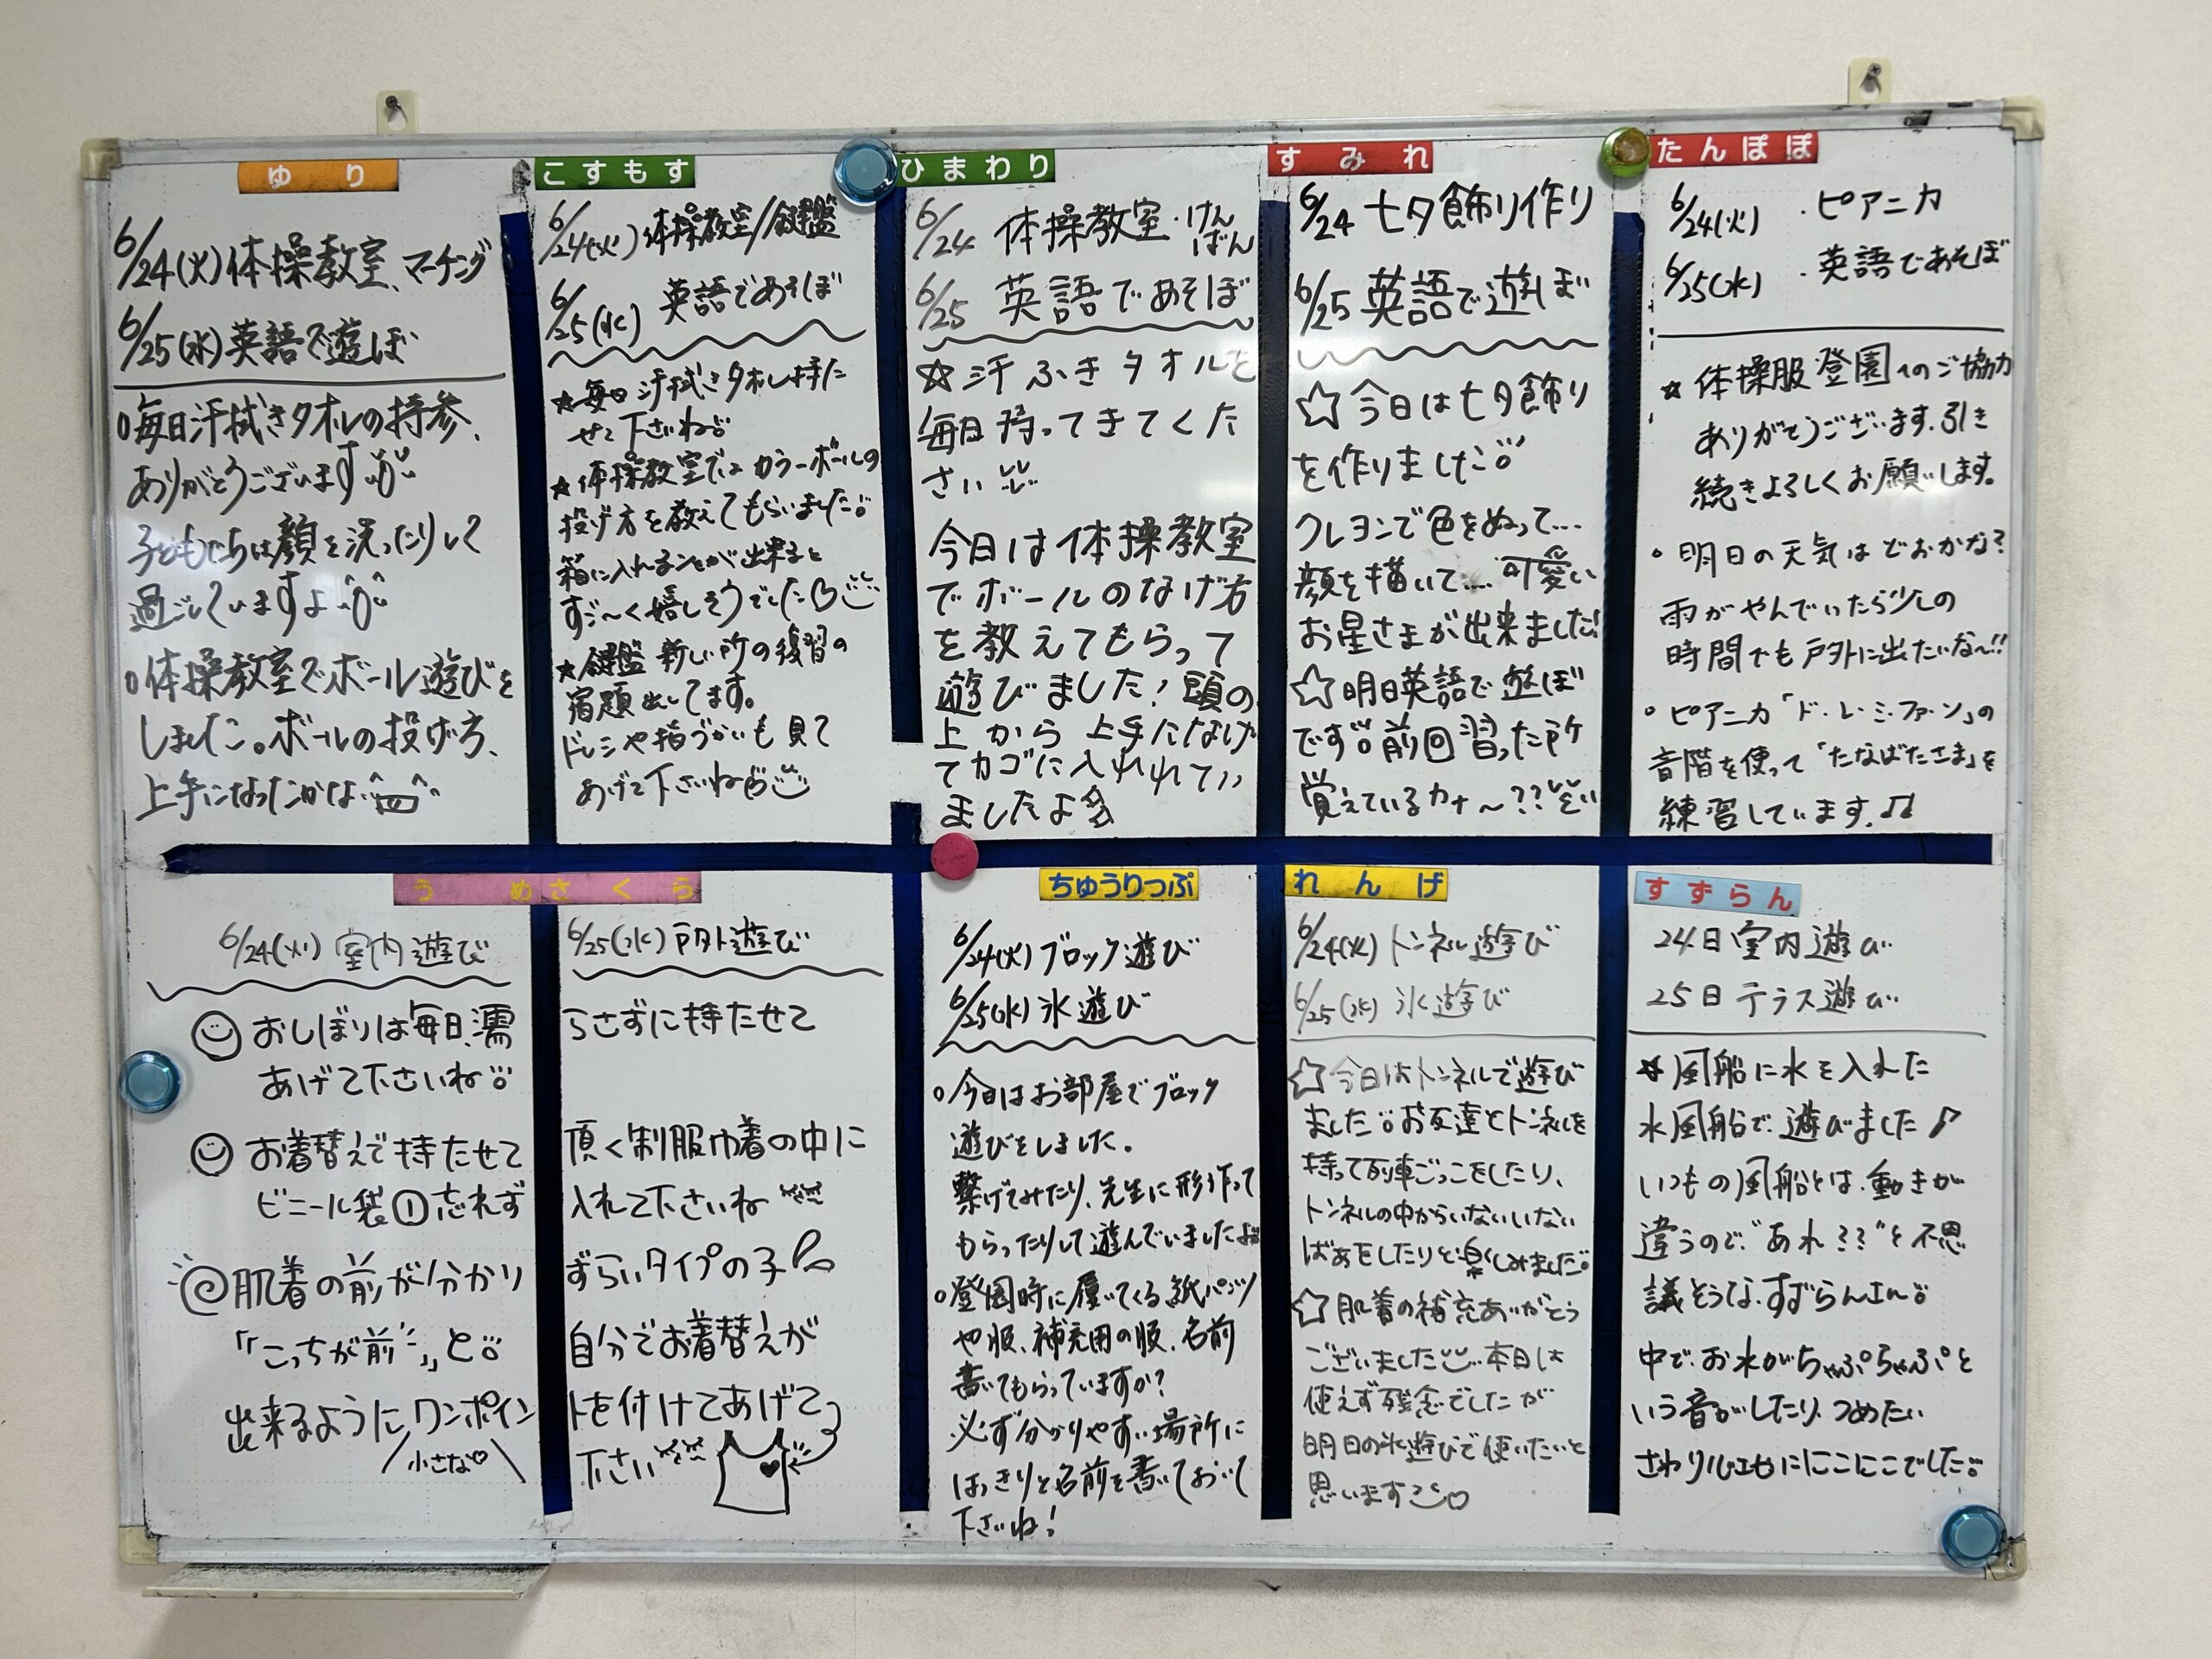 ゆり
6/24(火)体操教室、マーチング
6/25(水)英語で遊ぼ
○毎日汗拭きタオルの持参、
ありがとうございます
子どもたちは顔を洗ったりして
過ごしていますよ
○体操教室でボール遊びを
しました。ボールの投げ方、
上手になったかな
こすもす
6/24(火)体操教室/鍵盤
6/25(水) 英語であそぼ
★毎日汗拭きタオル持た
せて下さいね
★体操教室ではカラーボールの
投げ方を教えてもらいました。
箱に入れることが出来ると
すご〜く嬉しそうでした
★鍵盤 新しい所の復習の
宿題出してます。
ドレミや指づかいも見て
あげて下さいね
ひまわり
6/24 体操教室・けんばん
6/25 英語であそぼ
☆汗ふきタオルを
毎日持ってきてくだ
さい
今日は体操教室
でボールのなげ方
を教えてもらって
遊びました!頭の
上から上手になげ
てカゴに入れれてい
ましたよ
すみれ
6/24 七夕飾り作り
6/25 英語で遊ぼ
☆今日は七夕飾り
を作りました
クレヨンで色をぬって…
顔を描いて…可愛い
お星さまが出来ました!
☆明日英語で遊ぼ
です 前回習った所
覚えているカナ〜??
たんぽぽ
6/24(火) ・ピアニカ
6/25(水) ・英語であそぼ
★体操服登園へのご協力
ありがとうございます。引き
続きよろしくお願いします。
○明日の天気はどおかな?
雨がやんでいたら少しの
時間でも戸外に出たいな〜!!
○ピアニカ「ド・レ・ミ・ファ・ソ」の
音階を使って「たなばたさま」を
練習しています。♪♪
うめさくら
6/24(火)室内遊び 6/25(水)戸外遊び
おしぼりは毎日、濡らさずに持たせて
あげて下さいね
お着替えで持たせて頂く制服巾着の中に
ビニール袋①忘れず入れて下さいね
肌着の前が分かりずらいタイプの子
「こっちが前」と 自分でお着替えが
出来るようにワンポイントを付けてあげて
小さな♡
下さい
ちゅうりっぷ
6/24(火)ブロック遊び
6/25(水)氷遊び
○今日はお部屋でブロック
遊びをしました。
繋げてみたり、先生に形を作って
もらったりして遊んでいましたよ
○登園時に履いてくる紙パンツ
や服、補充用の服、名前
書いてもらっていますか?
必ず分かりやすい場所に
はっきりと名前を書いておいて
下さいね!
れんげ
6/24(火)トンネル遊び
6/25(水)氷遊び
☆今日はトンネルで遊び
ました お友達とトンネルを
持って列車ごっこをしたり、
トンネルの中からいないいない
ばあをしたりと楽しみました
☆肌着の補充ありがとう
ございました 本日は
使えず残念でしたが
明日の氷遊びで使いたいと
思います
すずらん
24日室内遊び
25日テラス遊び
★風船に水を入れた
水風船で遊びました♪
いつもの風船とは、動きが
違うので"あれ??"と不思
議そうな、すずらんさん
中で、お水がちゃぷちゃぷと
いう音がしたり、つめたい
さわり心地ににこにこでした